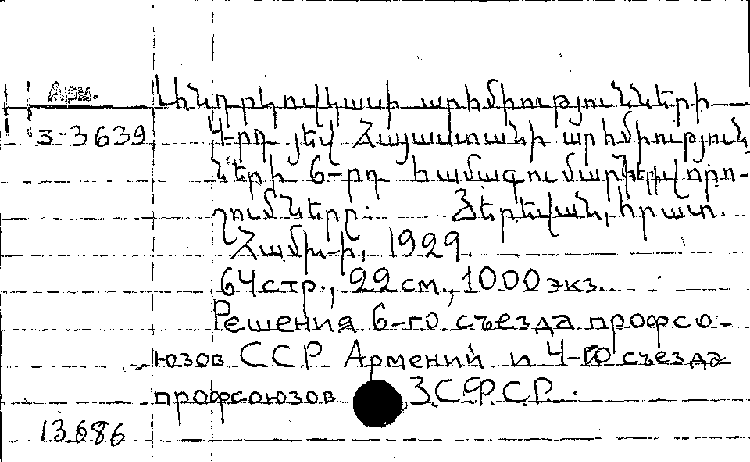 Арм.
Անդրկովկասի արհմիությունների
3-3639 4-րդ յեվ Հայաստանի արհմիություն-
ների 6-րդ համագումարների վորո-
շումները: Յերեվան, հրատ.
Համխ-ի, 1929.
64стр., 22 см., 1000 экз.
Решения 6-го съезда профсо-
юзов ССР Армений и 4-го съезда
профсоюзов З.С.Ф.С.Р.
13686